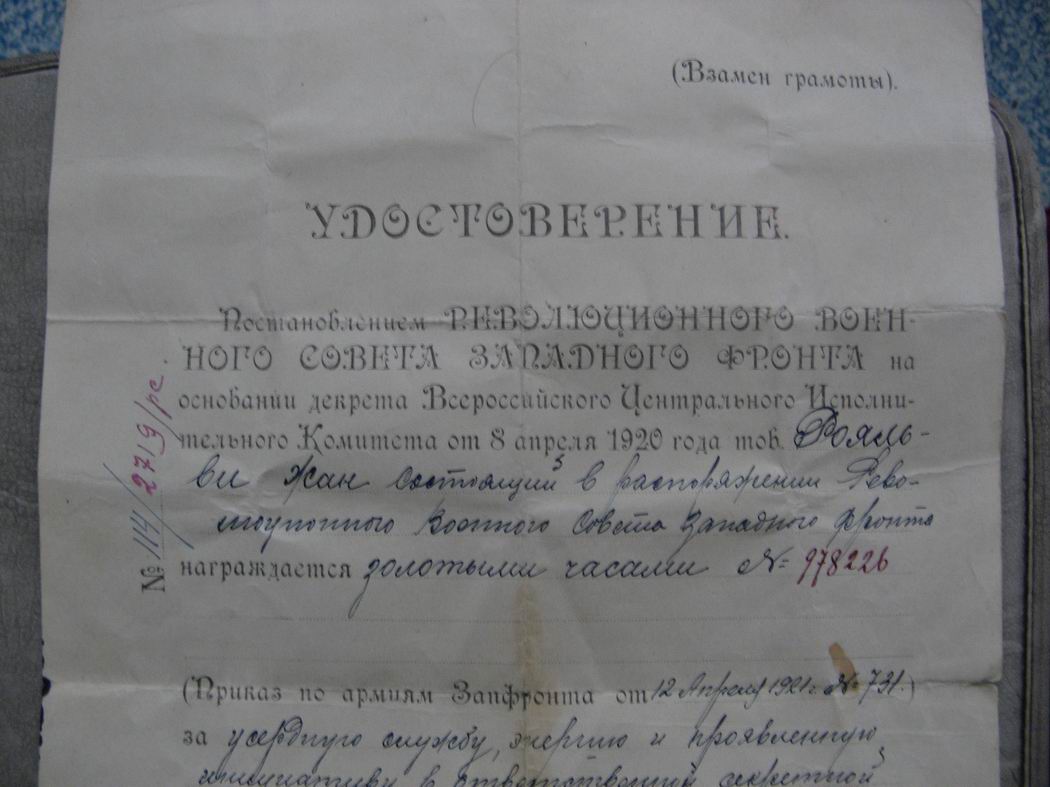 (Взамен грамоты).
УДОСТОВЕРЕНИЕ.
Постановлением РЕВОЛЮЦИОННОГО ВОЕН-
НОГО СОВЕТА ЗАПАДНОГО ФРОНТА на
основании декрета Всероссийского Центрального Исполни-
тельного Комитета от 8 апреля 1920 года тов. Рояль-
ви Жан состоящий в распоряжении Рево-
люционного Военного Совета Западного фронта
награждается золотыми часами № 978226
(Приказ по армиям Запфронта от 12 Апреля 1921 г. № 731.)
за усердную службу, энергию и проявленную
инициативу в ответственной секретной
№ 114/2719/рс